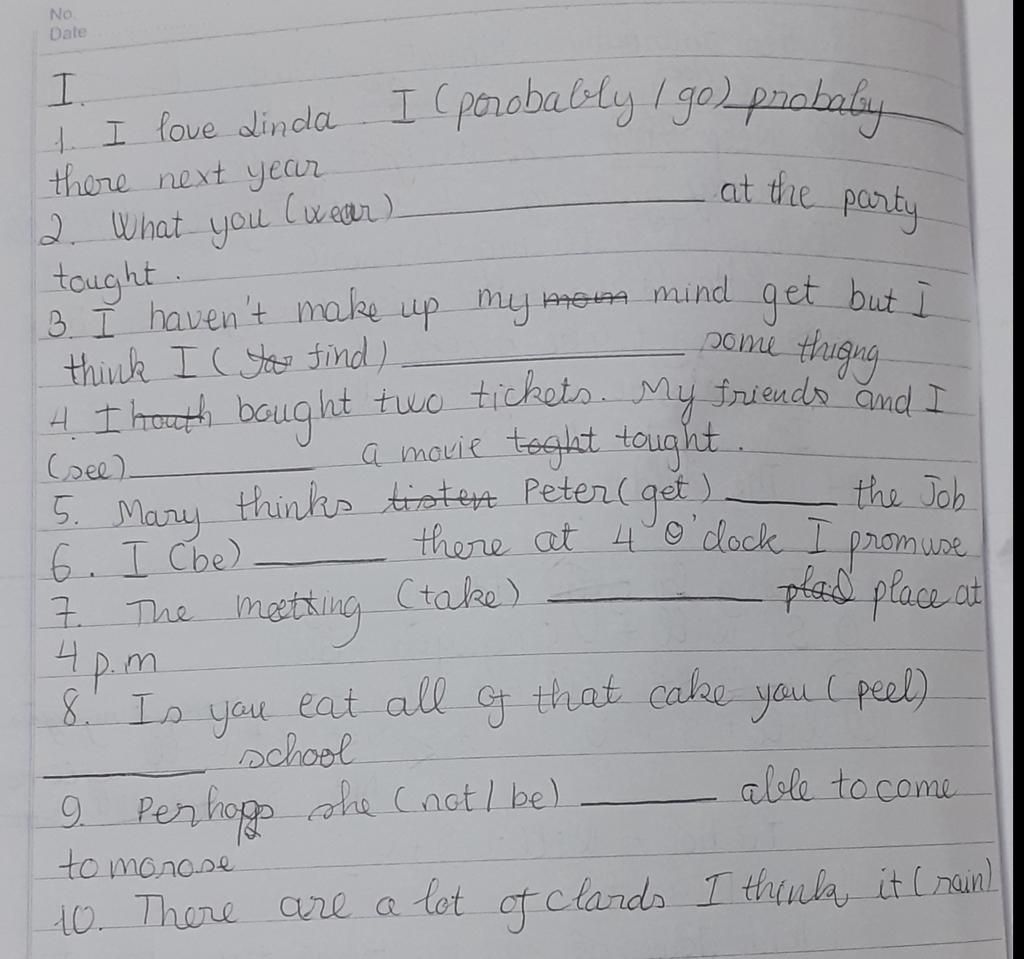 No.
Date
I.
1. I love Linda. I (porobably / go) probaby
there next year
2. What you (wear) __________ at the party
tought.
3. I haven't make up my mom mind get but I
think I (you find) __________ some thigng
4. I houth bought two tickets. My friends and I
(see) __________ a movie toght tought.
5. Mary thinks listen Peter (get) ______ the Job
6. I (be) ______ there at 4 o'clock I promuse
7. The meetting (take) __________ plad place at
4 p.m
8. Is you eat all of that cake you (peel)
__________ school
9. Perhaps she (not / be) ______ able to come
tomorose
10. There are a lot of clards I think it (rain)